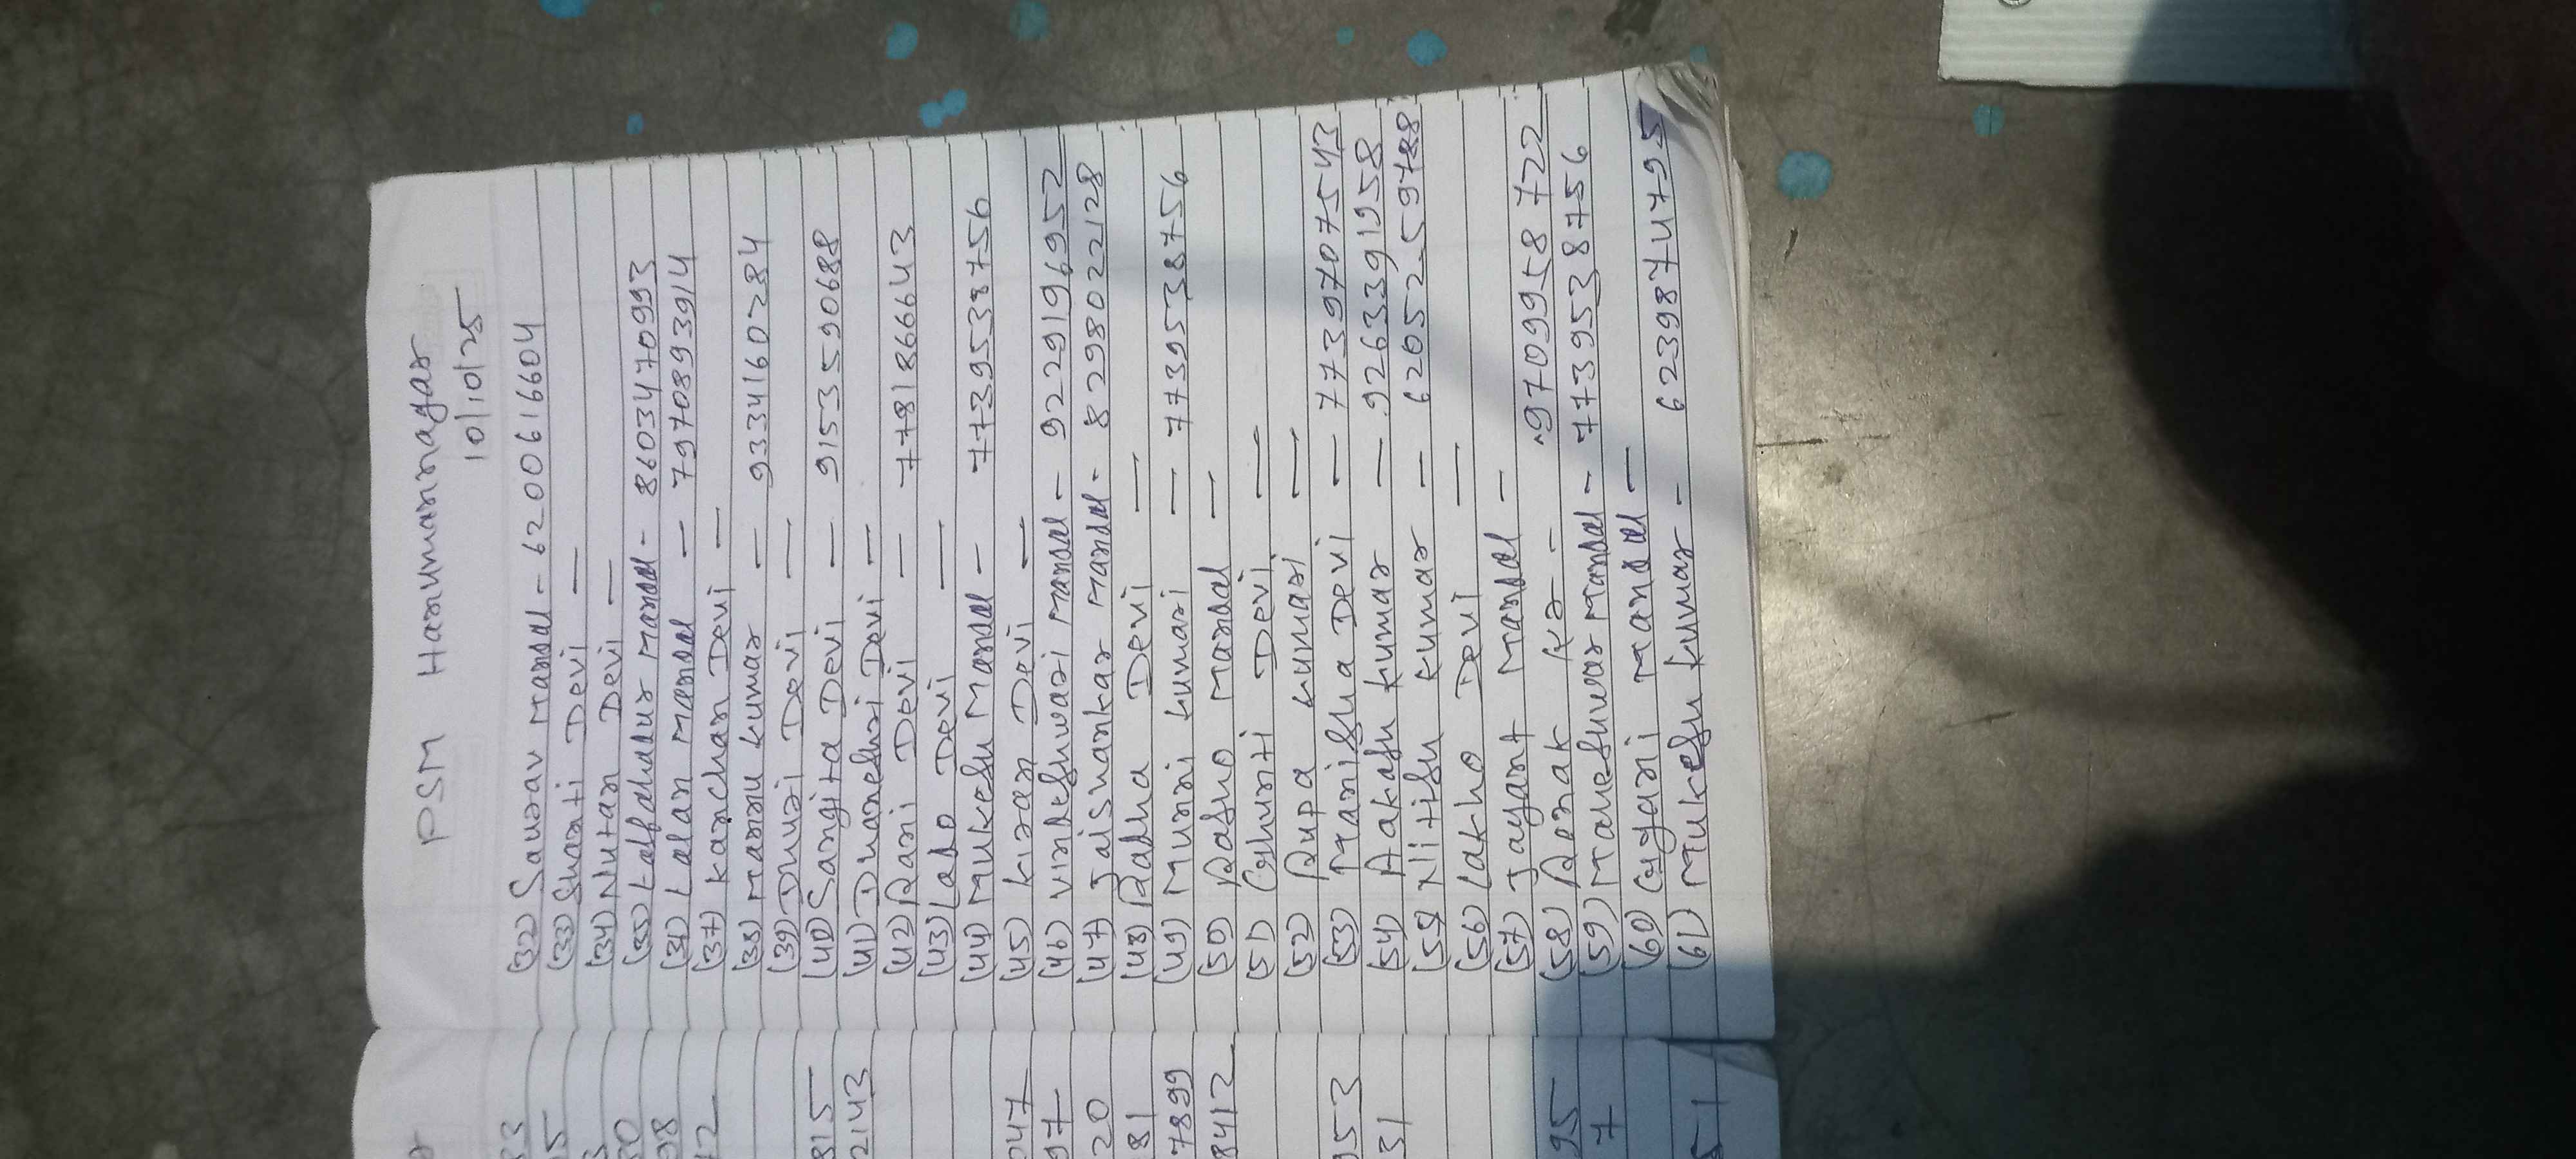 PSM Hanumannagar
10/10/25
(32) Saurav Mandal - 6200616604
(33) Shanti Devi —
(34) Nutan Devi —
(35) Lalbahadur Mandal - 8603470993
(31) Lalan Mandal — 7970893914
(37) Kanchan Devi —
(38) Mannu Kumar — 9334160284
(39) Dhuri Devi —
(40) Sangita Devi — 9153590688
(41) Dhaneshri Devi —
(42) Rani Devi — 7781866643
(43) Lado Devi —
(44) Mukesh Mandal - 7739538756
(45) Kiran Devi —
(46) Vindeshwari Mandal - 9229196952
(47) Jaishankar Mandal - 8298022128
(48) Radha Devi —
(49) Munni Kumari — 7739538756
(50) Rasho Mandal —
(51) Ghunti Devi —
(52) Rupa Kumari —
(53) Manisha Devi — 7739707543
(54) Aakash Kumar — 9263391958
(55) Nitish Kumar — 6205259788
(56) Lakho Devi —
(57) Jayant Mandal —
(58) Kr. - 9709958722
(59) Maheshwar Mandal - 7739538756
(60) Gyani Mandal —
(61) Mukesh Kumar - 6239874795
815
2143
047
97
20
81
7899
8412
953
31
95
7
51